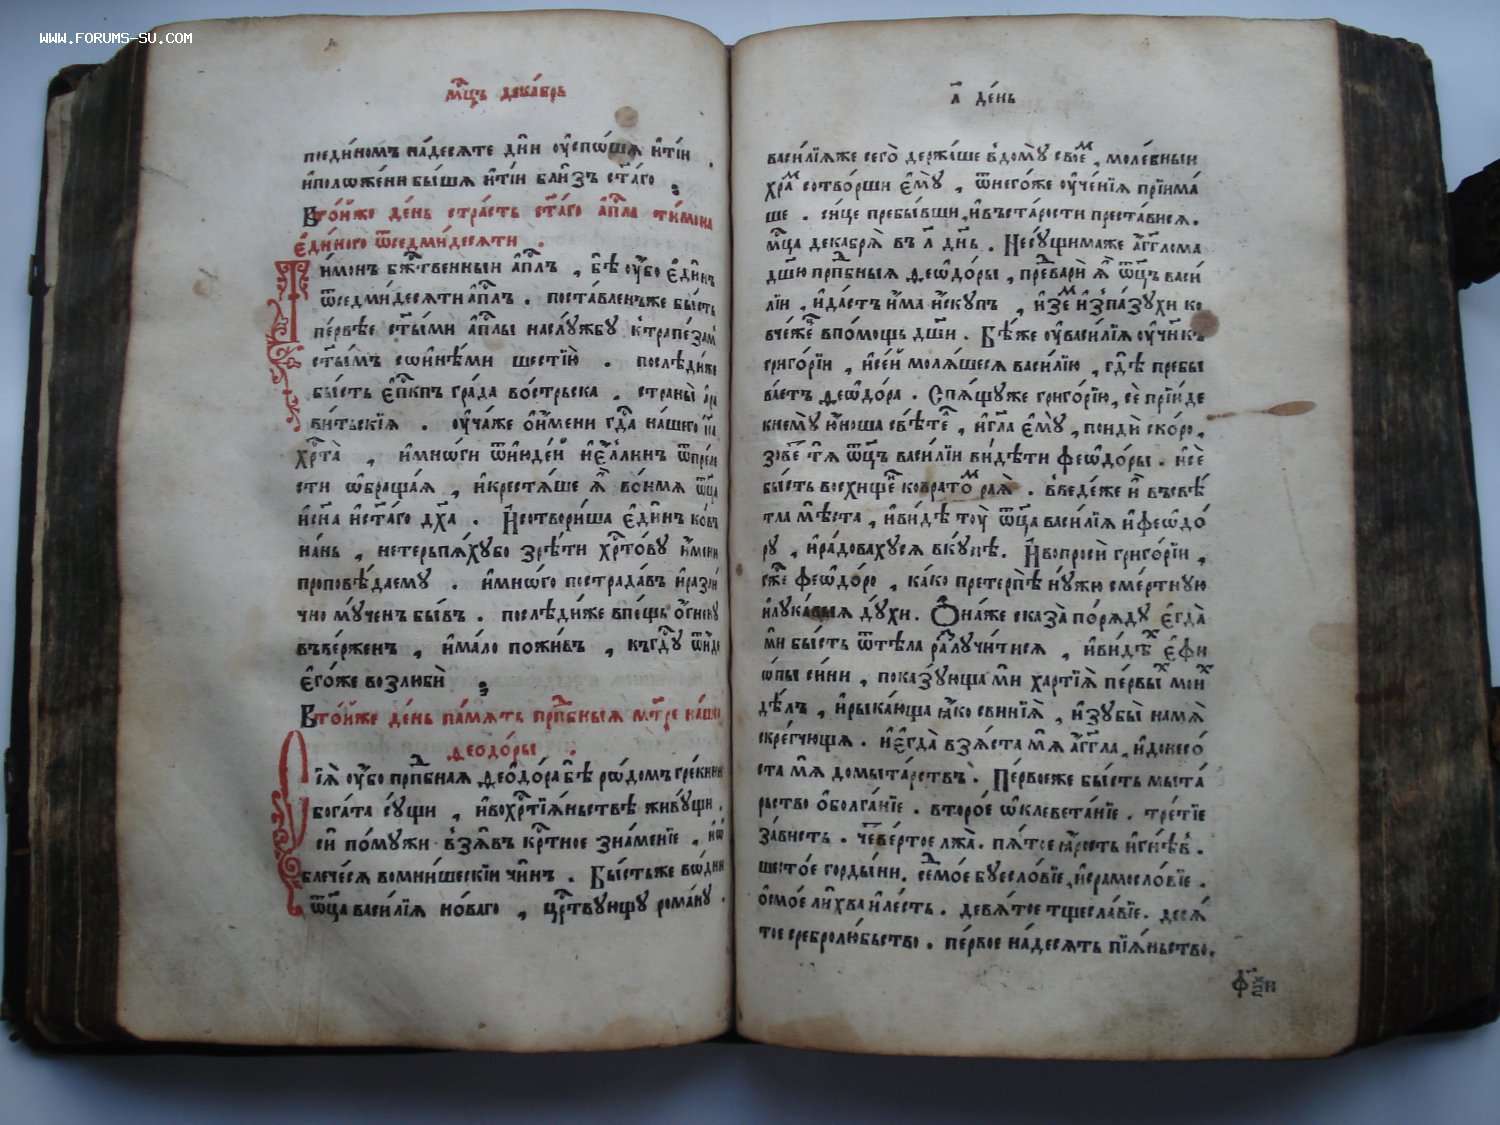 WWW.FORUMS-SU.COM
мⷭ҇цъ дека́брь
поеди́номъ на́десѧте дн҃и ᲂу҆спо́шѧ и҆тїи .
и҆положени бы́шѧ и҆тїи бли́зъ ст҃а́го
Вто́йже де́нь стра́сть ст҃а́го а҆пⷭ҇ла ти́мона
є҆ди́ного ѿседми́десѧти .
Ти́монъ бжⷭ҇твенныи а҆пⷭ҇лъ , бѣ̀ ᲂу҆́бо є҆ди́нъ
ѿседми́десѧти а҆пⷭ҇лъ . поста́вленъже бы́сть
пе́рвѣе ст҃ы́ми а҆пⷭ҇лы наслу́жбу к̾трапе́замъ
ст҃ы́мъ сѡи҆нѣ́ми шестїю̀ . послѣди́же
бы́сть є҆пⷭ҇кпъ гра́да во́стрьска . страны̀ ара
ви́тьскїѧ . ᲂу҆ча́же ѡ҆и҆́мени гдⷭ҇а на́шего і҆са
хрⷭ҇та̀ , и҆мнѡ́ги ѿи҆юде́й и҆є҆́ллинъ ѿпреле
сти ѡ҆браща́ѧ , и҆крестѧ́ше ѧ҆̀ во́имѧ ѿц҃а
и҆сн҃а и҆ст҃а́го дх҃а . И҆сотвори́ша є҆ди́нъ ко́в
на́нь , нетерьпѧ́хубо зрѣ́ти хрⷭ҇то́ву и҆́мени
проповѣ́даему . и҆мнѡ́го пострада́въ и҆разли́
чно му́ченъ бы́въ . послѣди́же впе́щь ѻ҆́гнену
въве́рженъ , и҆ма́ло пожи́въ , къгдⷭ҇у ѿи҆́де
є҆го́же возлюбѝ
Вто́йже де́нь па́мѧть прпⷣбныѧ мт҃ре на́шеѧ
Ѳеодо́ры .
Сїѧ̀ ᲂу҆́бо прпⷣбнаѧ Ѳеѡдо́ра бѣ̀ ро́домъ гре́кини
бога́та су́щи , и҆вохрⷭ҇тїѧ́ньствѣ живу́щи .
си́ по́мужи взѧ́въ крⷭ҇тное зна́менїе , и҆ѡ
блече́сѧ вомни́шескїи чи́нъ . Бы́стьже во́дни
ѿц҃а васи́лїѧ но́ваго , црⷭ҇твующу рома́ну .
л҃ де́нь
васи́лїѧже сего̀ держа́ше в̾дому̀ свое́мъ , моле́бныи
хра́мъ сотво́рши є҆мꙋ̀ , ѿнего́же ᲂу҆че́нїѧ прїима́
ше . си́це пребы́вши , и҆въста́рости преста́висѧ .
мⷭ҇ца декабрѧ̀ въ л҃ дн҃ь . Несу́щимаже а҆́гг҃лома
дш҃ю прпⷣбныѧ Ѳеѡдо́ры , предварѝ ѧ҆̀ ѿц҃ъ васи́
лїи , и҆да́стъ и҆́ма и҆́скупъ , и҆зе́мъ и҆зпа́зухи ко
вче́жецъ впо́мощь дш҃и . Бѣ́же ᲂу҆васи́лїѧ ᲂу҆чн҃къ
григо́рїи , и҆се́й молѧ́шесѧ васи́лїю , гдѣ̀ пребы
ва́етъ Ѳеѡдо́ра . Спѧ́щуже григо́рїю, сѐ прїи́де
кнему̀ ю҆́ноша свѣ́телъ , и҆гла̀ є҆му̀ , поидѝ ско́ро,
зове́тъ тѧ̀ ѿц҃ъ васи́лїи ви́дѣти феѡдо́ры . и҆сѐ
бы́сть восхище́нъ ковратомъ раѧ̀ . введе́же и҆̀ въсвѣ́
тла мѣ́ста , и҆ви́дѣ тоу̀ ѿц҃а васи́лїѧ и҆феѡдо́
ру , и҆ра́довахусѧ вку́пѣ. И҆вопросѝ григо́рїи ,
гжⷭ҇е феѡдо́ро , ка́ко претерпѣ̀ ну́жю сме́ртную
и҆лука́выѧ ду́хи . Ѻ҆на́же сказа̀ по́рѧду є҆гда̀
мѝ бы́сть ѿтѣ́ла разлучи́тисѧ , и҆ви́дѣхъ є҆фи
ѡ́пы си́ни , показу́юща мѝ харті́ѧ пе́рвыхъ мои́хъ
дѣ́лъ , и҆рыка́юща ꙗ҆́ко свинїѧ̀ , и҆зу́бы намѧ̀
скре́гчюща . и҆є҆гда̀ взѧ́ста мѧ̀ а҆́гг҃ла , и҆донесо́
ста мѧ̀ до́мыта́рствъ . Пе́рвоеже бы́сть мыта́
рьство ѻ҆болга́нїе . второ́е ѡ҆клевета́нїе . тре́тїе
за́висть . четве́ртое лжа̀. пѧ́тое ꙗ҆́рость и҆гнѣ́въ .
шесто́е горды́ни. седмо́е буесло́вїе , и҆срамосло́вїе .
ѻ҆смо́е ли́хва и҆ле́сть . девѧ́тое тщесла́вїе . десѧ́
тое сребролю́бьство . пе́рвое на́десѧть пїѧ́ньство.